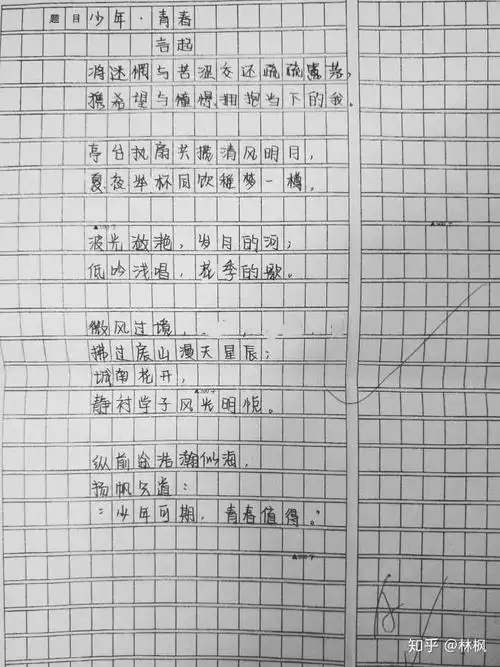 题目少年·青春
言起
将迷惘与苦涩交还疏疏篱落,
携希望与憧憬拥抱当下的我。
亭台执扇共揽清风明月,
夏夜举杯同饮稚梦一樽,
波光潋滟,岁月的河;
低吟浅唱,花季的歌。
微风过境,
拂过辰山漫天星辰;
城南花开,
静衬学子风光明帧。
纵前途浩瀚似海,
扬帆只道:
“少年可期,青春值得。”
知乎 @林枫